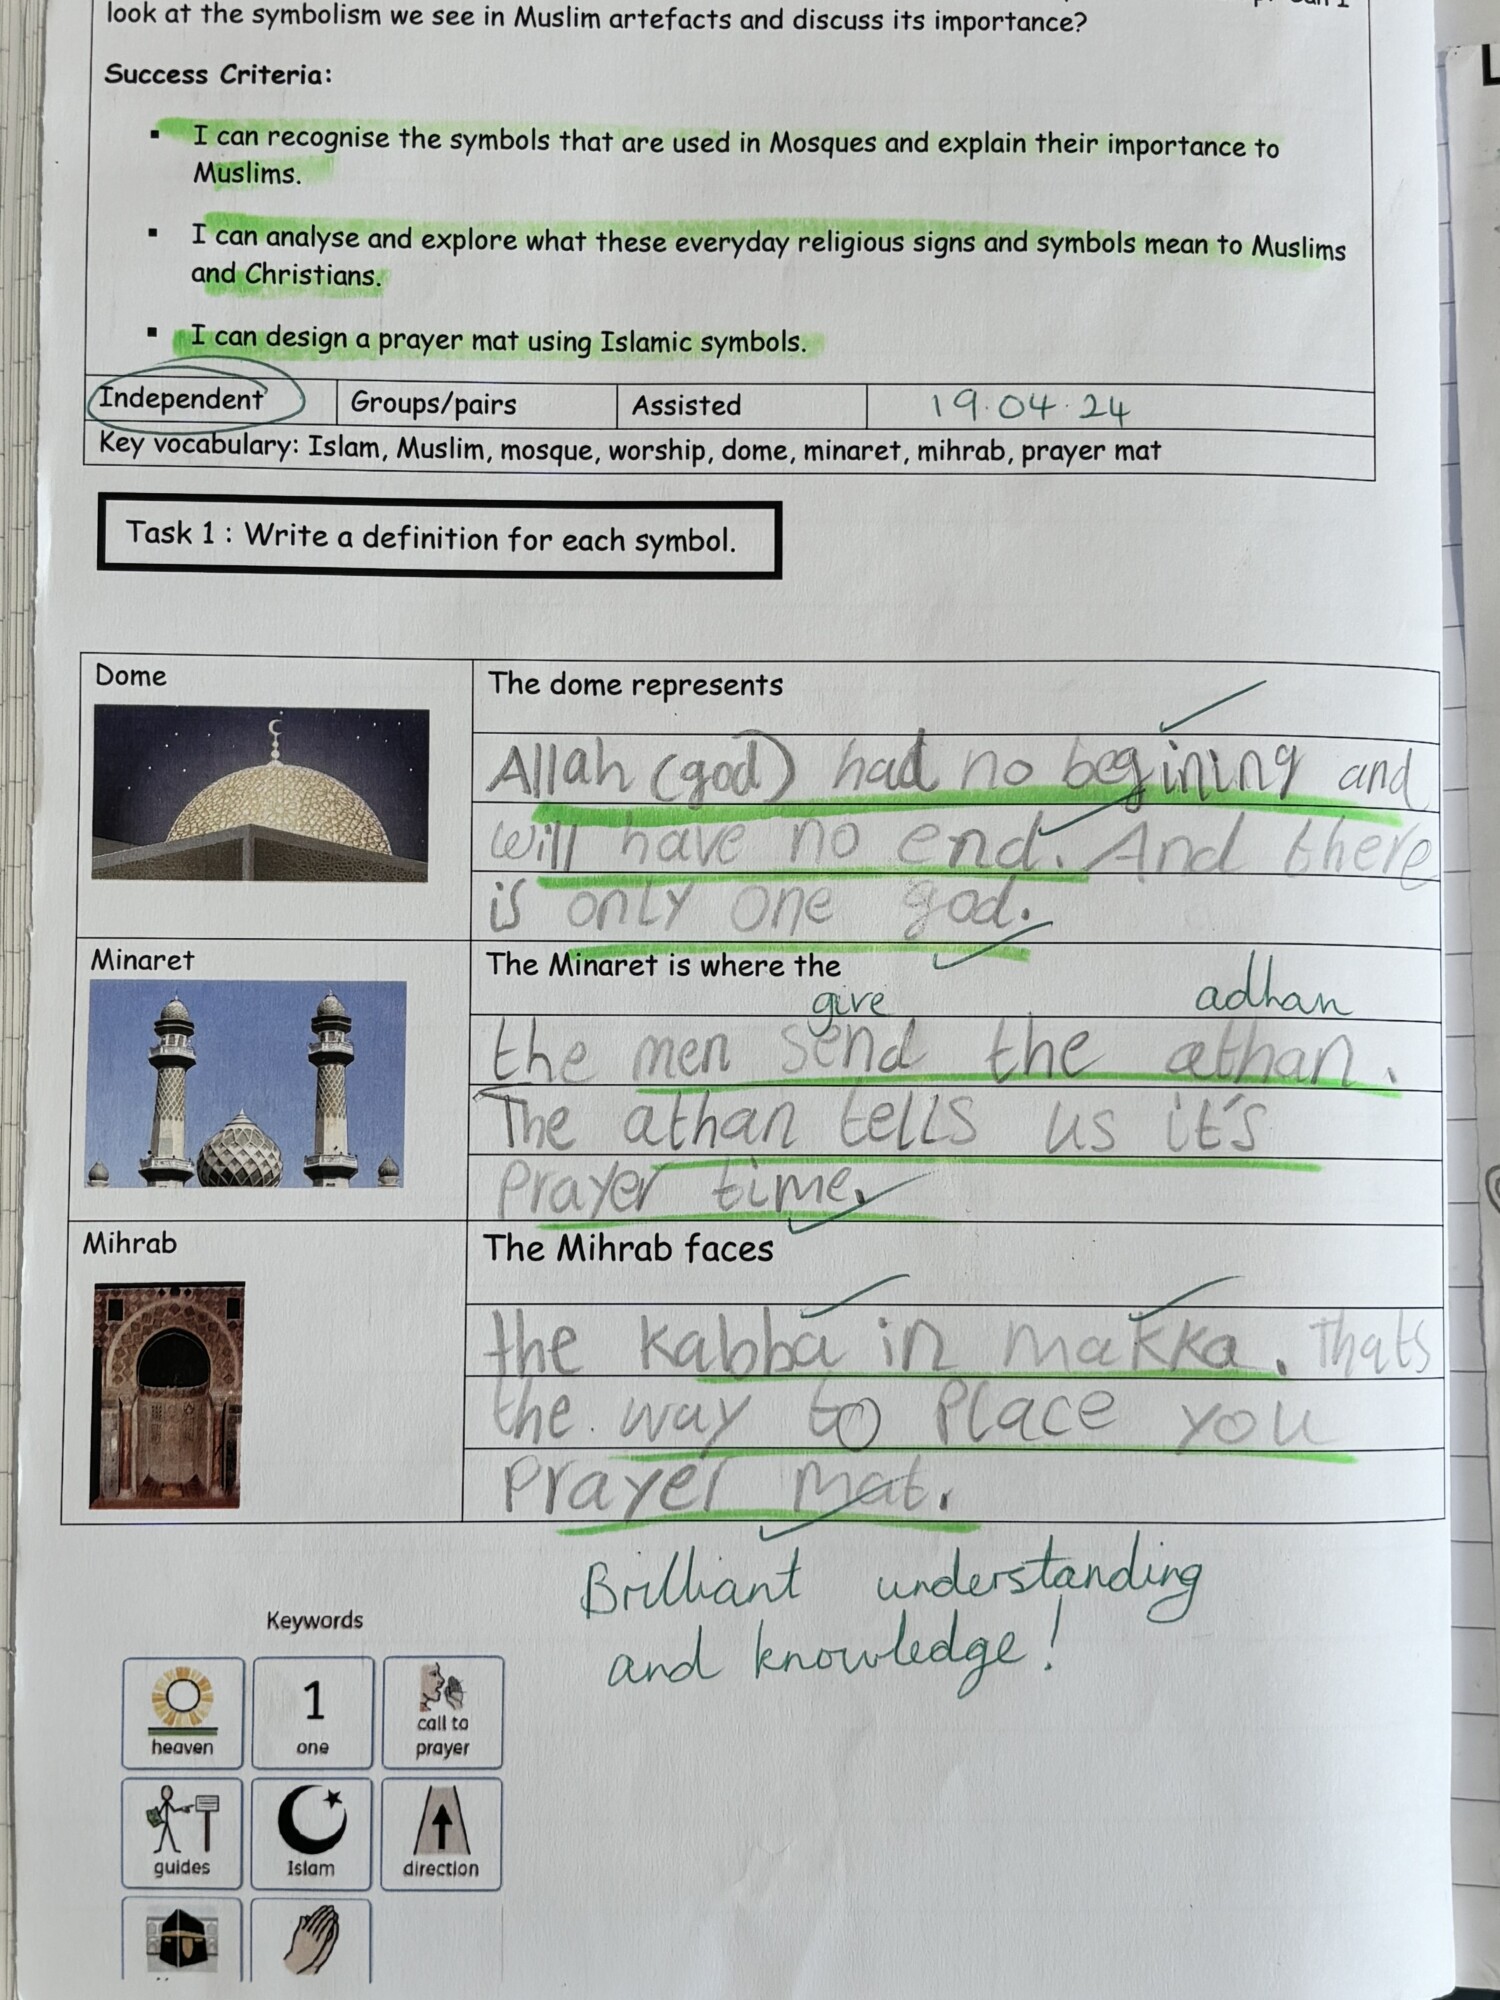 look at the symbolism we see in Muslim artefacts and discuss its importance?
Success Criteria:
▪ I can recognise the symbols that are used in Mosques and explain their importance to
Muslims.
▪ I can analyse and explore what these everyday religious signs and symbols mean to Muslims
and Christians.
▪ I can design a prayer mat using Islamic symbols.
Independent Groups/pairs Assisted 19.04.24
Key vocabulary: Islam, Muslim, mosque, worship, dome, minaret, mihrab, prayer mat
Task 1 : Write a definition for each symbol.
Dome
The dome represents
Allah (god) had no begining and
will have no end. And there
is only one god.
Minaret
The Minaret is where the
give adhan
the men send the athan.
The athan tells us it's
prayer time.
Mihrab
The Mihrab faces
the kabba in makka. thats
the way to place you
prayer mat.
Brilliant understanding
and knowledge!
Keywords
heaven
one
1
call to
prayer
guides
Islam
direction